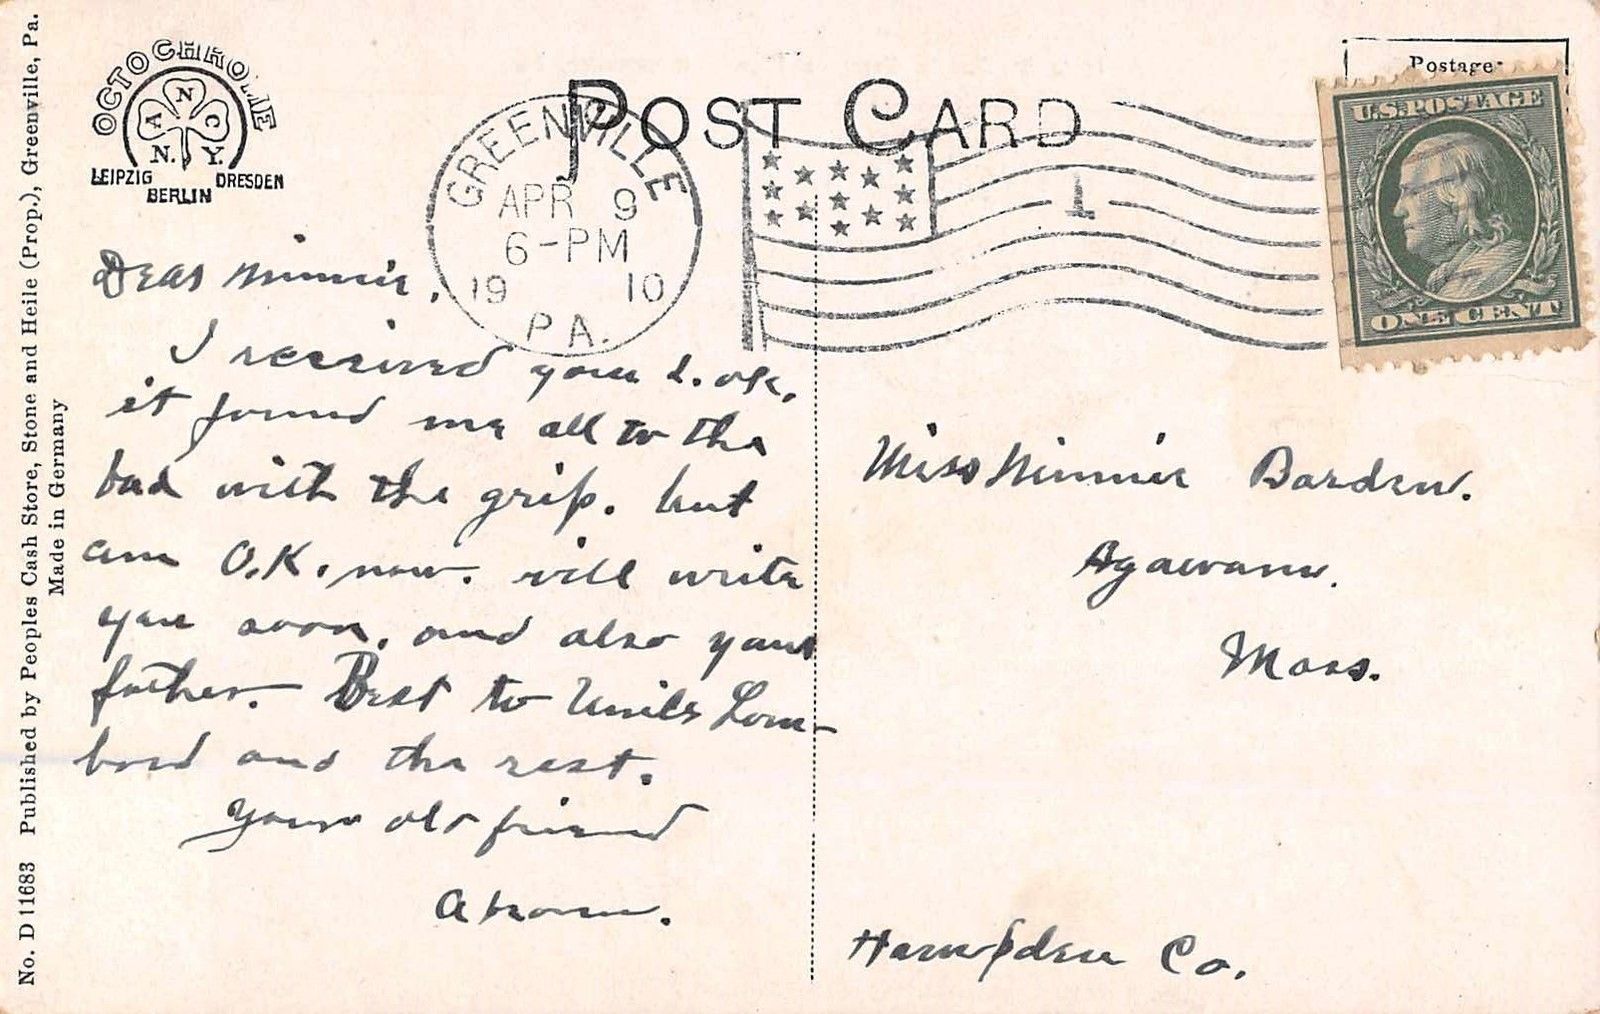 No. D 11683 Published by Peoples Cash Store, Stone and Heile (Prop.), Greenville, Pa.
Made in Germany
OCTOCHROME
A N C
N. Y.
LEIPZIG BERLIN DRESDEN
POST CARD
GREENVILLE
APR 9
6-PM
19 10
PA.
1
Postage
U.S. POSTAGE
ONE CENT
Dear Minnie.
I received your L. ok.
it found me all to the
bad with the grip. but
am O.K. now. will write
you soon. and also your
father. Best to Uncle Lom-
bard and the rest.
Your old friend
Miss Minnie Barden.
Agawam.
Mass.
Hampden Co.